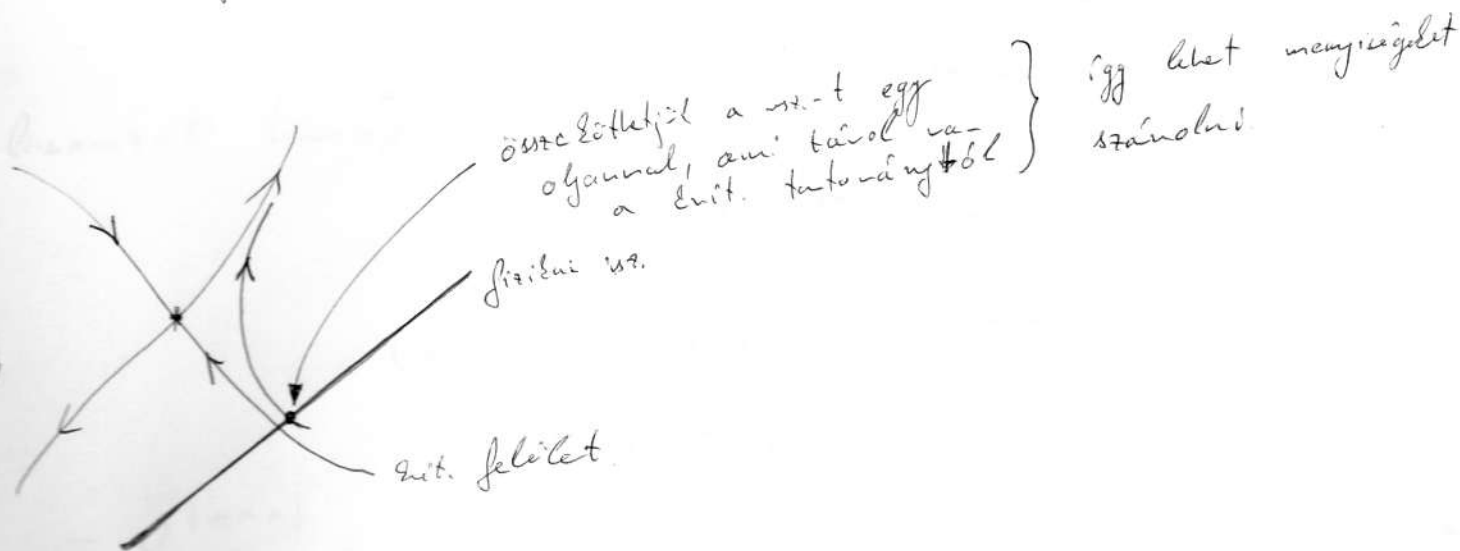 összeköthetjük a rsz.-t egy
olyannal, ami távol va-
a krit. tartománytól
így lehet mennyiségeket
számolni.
fizikai rsz.
krit. felület